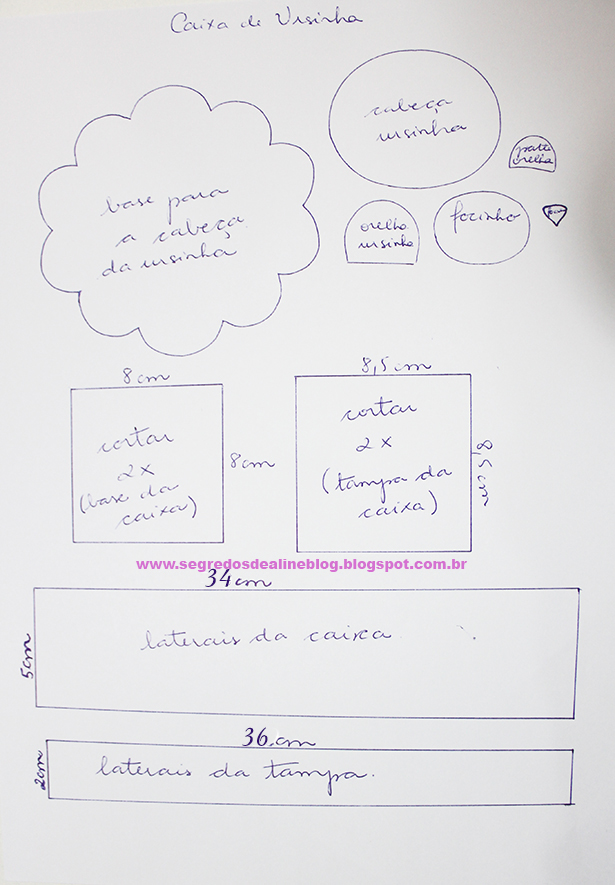 Caixa de Ursinha
cabeça
ursinha
parte
orelha
base para
a cabeça
da ursinha
orelha
ursinha
focinho
8cm
8,5 cm
cortar
2x
(base da
caixa)
8cm
cortar
2x
(tampa da
caixa)
8,5 cm
www.segredosdealineblog.blogspot.com.br
34cm
5cm
laterais da caixa
36cm
2cm
laterais da tampa.